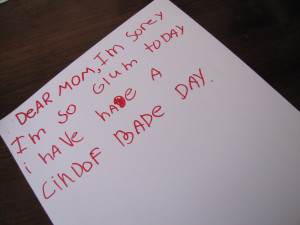 DEAR MOM, Im SORRY
Im SO Glum TODAY
i HAVE HADE A
CinDOF BADE DAY.